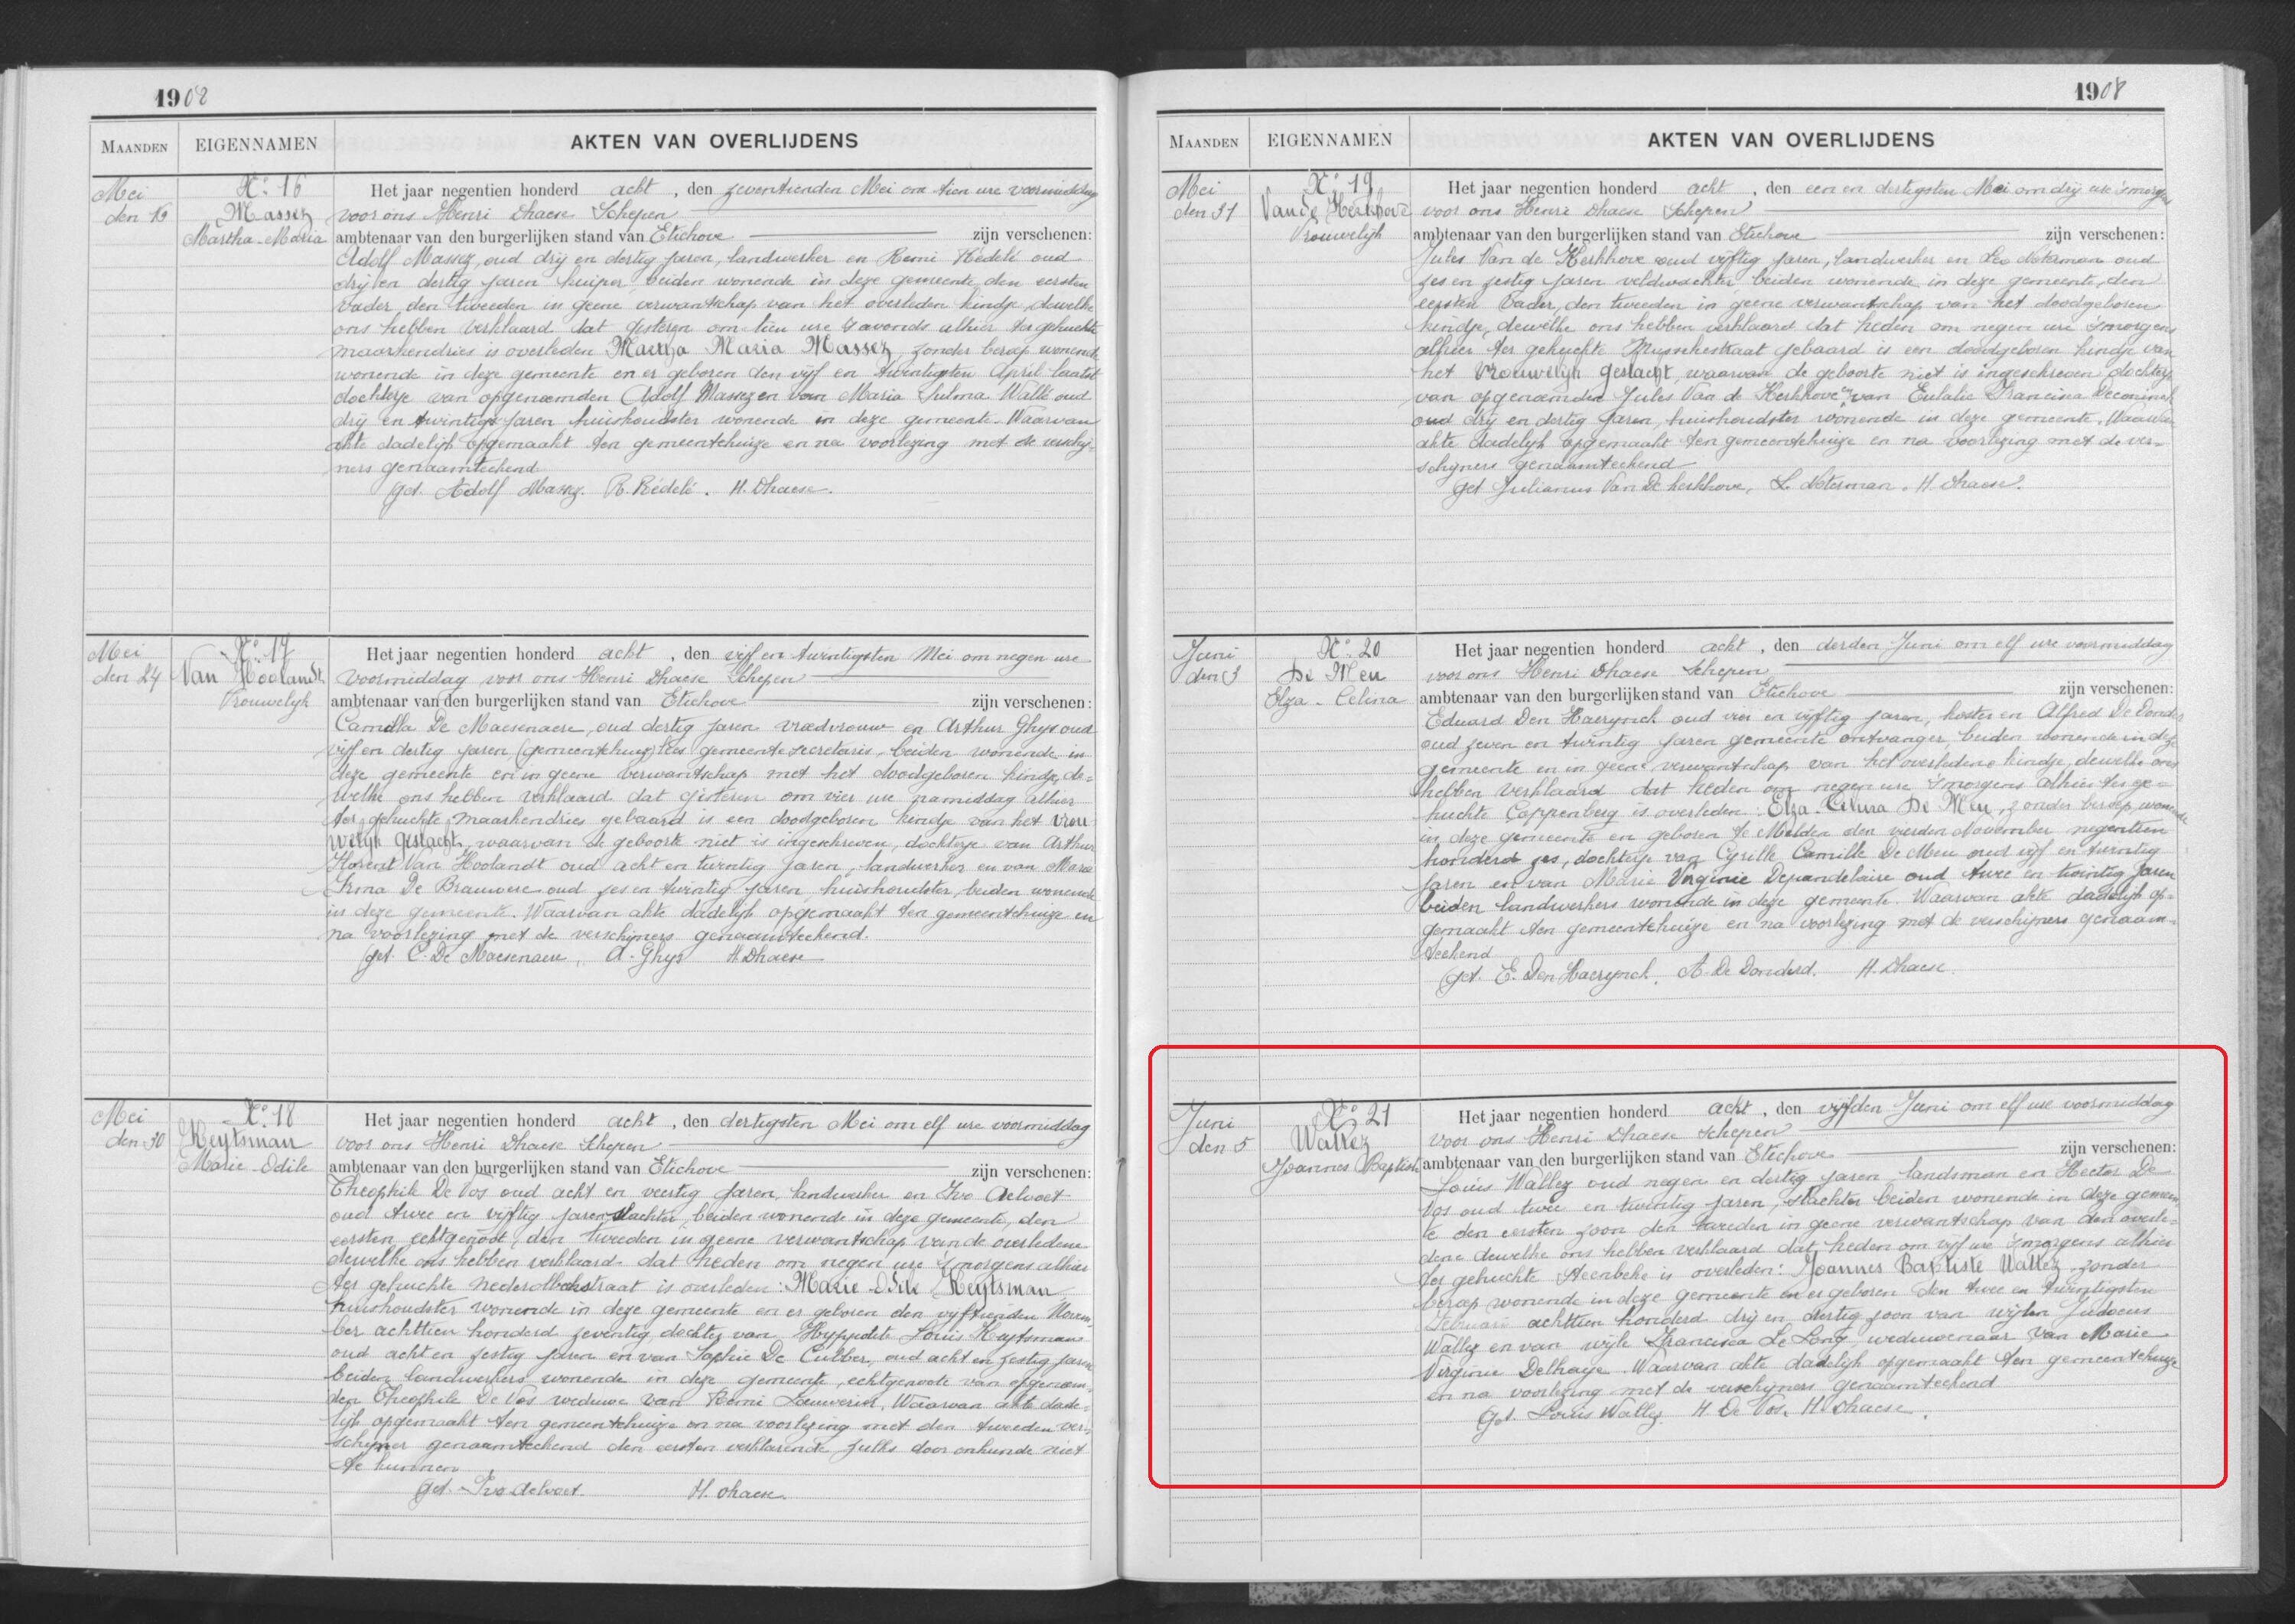 1908
MAANDEN EIGENNAMEN AKTEN VAN OVERLIJDENS
Mei
den 16
N.º 16
Massez
Martha-Maria
Het jaar negentien honderd acht, den zeventienden Mei om tien ure voormiddag
voor ons Henri Dhaese Schepen
ambtenaar van den burgerlijken stand van Etichove zijn verschenen:
Adolf Massez, oud drij en dertig jaren, landwerker en Remi Redelé oud
drij en dertig jaren kuiper, beiden wonende in deze gemeente den eersten
vader den tweeden in geene verwantschap van het overleden kindje, dewelke
ons hebben verklaard dat gisteren om tien ure s'avonds alhier ter gehuchte
maarkendries is overleden Martha Maria Massez, zonder beroep wonende
wonende in deze gemeente en er geboren den vijf en twintigsten April laatst
dochterje van opgenoemden Adolf Massez en van Maria Julma Wallé oud
drij en twintig jaren huishoudster wonende in deze gemeente. Waarvan
akte dadelijk opgemaakt ten gemeentehuize en na voorlezing met de verschij-
ners genaamteekend
get. Adolf Massez. R. Redelé. H. Dhaese.
Mei
den 24
N.º 17
Van Hoolandt
Vrouwelijk
Het jaar negentien honderd acht, den vijf en twintigsten Mei om negen ure
voormiddag voor ons Henri Dhaese Schepen
ambtenaar van den burgerlijken stand van Etichove zijn verschenen:
Camilla De Maesenaere, oud dertig jaren vroedvrouw en Arthur Ghys oud
vijf en dertig jaren (gemeentehuis) gemeentesecretaris, beiden wonende in
deze gemeente en in geene verwantschap met het doodgeboren kindje, de=
welke ons hebben verklaard dat gisteren om vier ure namiddag alhier
ter gehuchte maarkendries gebaard is een doodgeboren kindje van het vrou
welijk geslacht, waarvan de geboorte niet is ingeschreven, dochterje van Arthur
Florent Van Hoolandt oud acht en twintig jaren, landwerker en van Maria
Irma De Brauwere oud zes en twintig jaren, huishoudster, beiden wonende
in deze gemeente. Waarvan akte dadelijk opgemaakt ten gemeentehuize en
na voorlezing met de verschijners genaamteekend.
get. C. De Maesenaere, A. Ghys H. Dhaese
Mei
den 30
N.º 18
Heytsman
Marie-Odile
Het jaar negentien honderd acht, den dertigsten Mei om elf ure voormiddag
voor ons Henri Dhaese Schepen
ambtenaar van den burgerlijken stand van Etichove zijn verschenen:
Theophile De Vos oud acht en veertig jaren, landwerker en Ivo Aelvoet
oud twee en vijftig jaren slachter, beiden wonende in deze gemeente, den
eersten echtgenoot, den tweeden in geene verwantschap van de overledene
dewelke ons hebben verklaard dat heden om negen ure s'morgens alhier
ter gehuchte nederholbeekstraat is overleden: Marie Odile Heytsman
huishoudster wonende in deze gemeente en er geboren den vijftienden Novem
ber achttien honderd zeventig dochter van Hyppolite Louis Heytsman
oud acht en zestig jaren en van Sophie De Cubber, oud acht en zestig jaren
beiden landwerkers wonende in deze gemeente, echtgenoote van opgenoem-
den Theophile De Vos weduwe van Remi Lauweriers, Waarvan akte dade-
lijk opgemaakt ten gemeentehuize en na voorlezing met den tweeden ver-
schijner genaamteekend den eersten verklarende zulks door onkunde niet
te kunnen
get. Ivo Aelvoet. H. Dhaese.
1908
MAANDEN EIGENNAMEN AKTEN VAN OVERLIJDENS
Mei
den 31
N.º 19
Van de Kerkhove
Vrouwelijk
Het jaar negentien honderd acht, den een en dertigsten Mei om drij ure s'morgens
voor ons Henri Dhaese Schepen
ambtenaar van den burgerlijken stand van Etichove zijn verschenen:
Jules Van de Kerkhove oud vijftig jaren, landwerker en Leo Noterman oud
zes en zestig jaren veldwachter, beiden wonende in deze gemeente, den
eersten vader, den tweeden in geene verwantschap van het doodgeboren
kindje, dewelke ons hebben verklaard dat heden om negen ure s'morgens
alhier ter gehuchte Musschestraat gebaard is een doodgeboren kindje van
het Vrouwelijk geslacht, waarvan de geboorte niet is ingeschreven dochterje
van opgenoemden Jules Van de Kerkhove en van Eulalie Francisca Deconinck
oud drij en dertig jaren, huishoudster wonende in deze gemeente. Waarvan
akte dadelijk opgemaakt ten gemeentehuize en na voorlezing met de ver=
schijners genaamteekend
get Julianus Van De kerkhove, L. Noterman. H. Dhaese.
Juni
den 3
N.º 20
De Meu
Elza-Celina
Het jaar negentien honderd acht, den derden Juni om elf ure voormiddag
voor ons Henri Dhaese Schepen
ambtenaar van den burgerlijken stand van Etichove zijn verschenen:
Eduard Den Haerynck oud vier en vijftig jaren, koster en Alfred De Donder
oud zeven en twintig jaren gemeente ontvanger, beiden wonende in deze
gemeente en in geene verwantschap van het overledene kindje, dewelke ons
hebben verklaard dat heden om negen ure s'morgens alhier ter ge=
huchte Coppenberg is overleden: Elza-Celina De Meu, zonder beroep, wonende
in deze gemeente en geboren te Melden den vierden November negentien
honderd zes, dochterje van Cyrille Camille De Meu oud vijf en twintig
jaren en van Marie Virginie Depandelaire oud twee en twintig jaren
beiden landwerkers wonende in deze gemeente. Waarvan akte dadelijk op=
gemaakt ten gemeentehuize en na voorlezing met de verschijners genaam=
teekend
get. E. Den Haerynck, A. De Donder. H. Dhaese.
Juni
den 5
N.º 21
Wallez
Joannes Baptiste
Het jaar negentien honderd acht, den vijfden Juni om elf ure voormiddag
voor ons Henri Dhaese Schepen
ambtenaar van den burgerlijken stand van Etichove zijn verschenen:
Louis Wallez oud negen en dertig jaren, landsman en Hector De
Vos oud twee en twintig jaren, slachter beiden wonende in deze gemeen
te den eersten zoon den tweeden in geene verwantschap van den overle=
dene dewelke ons hebben verklaard dat heden om vijf ure s'morgens alhier
ter gehuchte Steenbeke is overleden: Joannes Baptiste Wallez, zonder
beroep wonende in deze gemeente en er geboren den twee en twintigsten
Februari achttien honderd drij en dertig zoon van wijlen Judocus
Wallez en van wijle Francisca Le Long, weduwenaar van Marie
Virginie Delhaye. Waarvan akte dadelijk opgemaakt ten gemeentehuize
en na voorlezing met de verschijners genaamteekend
Get. Louis Wallez H. De Vos. H. Dhaese.